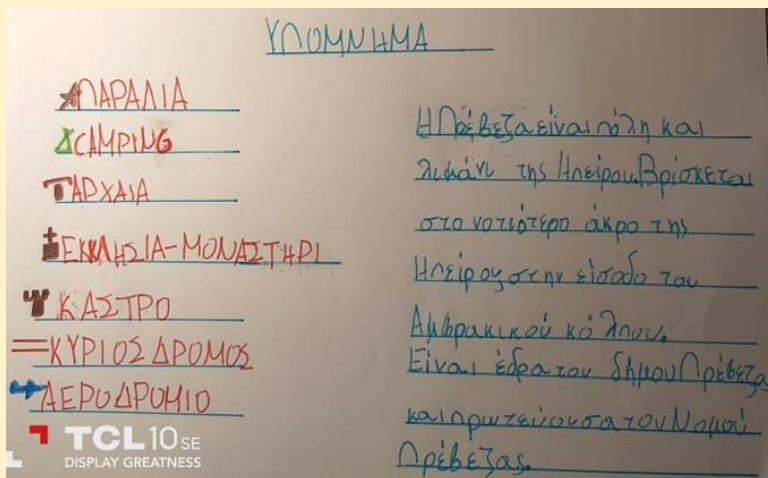 ΥΠΟΜΝΗΜΑ
ΠΑΡΑΛΙΑ
CAMPING
ΑΡΧΑΙΑ
ΕΚΚΛΗΣΙΑ-ΜΟΝΑΣΤΗΡΙ
ΚΑΣΤΡΟ
ΚΥΡΙΟΣ ΔΡΟΜΟΣ
ΑΕΡΟΔΡΟΜΙΟ
Η Πρέβεζα είναι πόλη και
λιμάνι της Ηπείρου. Βρίσκεται
στο νοτιότερο άκρο της
Ηπείρου, στην είσοδο του
Αμβρακικού κόλπου.
Είναι έδρα του δήμου Πρέβεζας
και πρωτεύουσα του Νομού
Πρέβεζας.
TCL 10 SE
DISPLAY GREATNESS